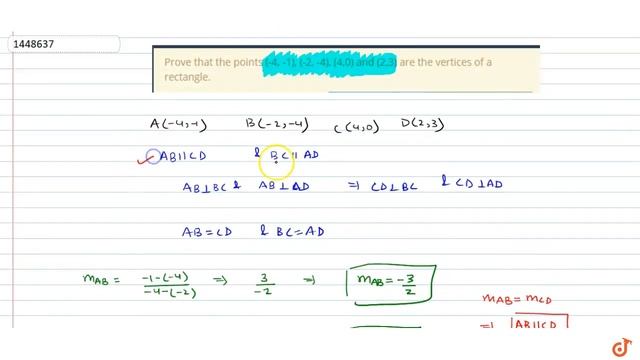 1448637
Prove that the points (-4, -1), (-2, -4), (4,0) and (2,3) are the vertices of a
rectangle.
A(-4,-1) B(-2,-4) C(4,0) D(2,3)
AB||CD & BC|| AD
AB⊥BC & AB⊥AD ⇒ CD⊥BC & CD⊥AD
AB=CD & BC=AD
mAB = -1-(-4)/-4-(-2) ⇒ 3/-2 ⇒ mAB = -3/2
mAB = mCD
⇒ AB||CD